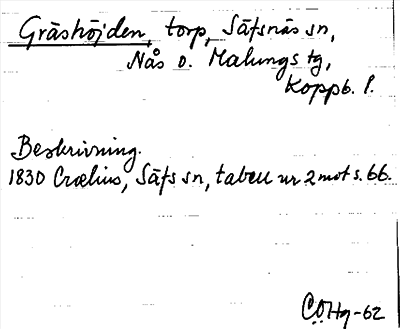 Gråshöjden, torp, Säfsnäs sn,
Nås o. Malungs tg,
Koppb. l.
Beskrivning.
1830 Crælius, Säfs sn, tabell nr 2 mot s. 66.
COHg-62